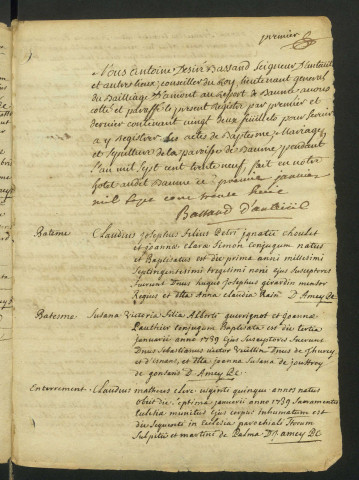 premier
Nous antoine Desiré Bassand Seigneur D'anteuil
et autres lieux, conseiller du Roy, lieutenant general
du Bailliage D'amont au Ressort de Baume, avons
cotté et paraffé le present Registre par premier et
dernier contenant vingt deux feuillets pour servir
a y Registrer les actes de Baptesme, Mariage
et sepulture de la paroisse de Baume pendant
l'an mil sept cent trente neuf, fait en notre
hotel audit Baume ce premier janvier
mil sept cent trente
Bassand d'anteüil
Bateme Claudius josephus Filius Petri ignatii choulet
et joannæ claræ Simon conjugum natus
et Baptisatus est die prima anni millesimi
Septingentesimi trigesimi noni Ejus Susceptores
fuerunt Dnus hugo josephus girardin
Regius et dlla Anna claudia D. Amey Pc
Batesme Susana Victoria Filia Alberti guerignot et joannæ
Pauthier conjugum Baptisata est die tertia
januarii anno 1739 Ejus Susceptores fuerunt
Dnus Sebastianus victor de Thurey
et dlla joanna Susana de jouffroy
de gonsand D. Amey Pc
Enterrement Claudius viginti quinque annos natus
obiit die Septima januarii anno 1739 Sacramentis
Ecclesiæ munitus Ejus corpus inhumatum est
die Sequenti in Ecclesia parochiali
Sulpitii et martini de Palma D. amey Pc